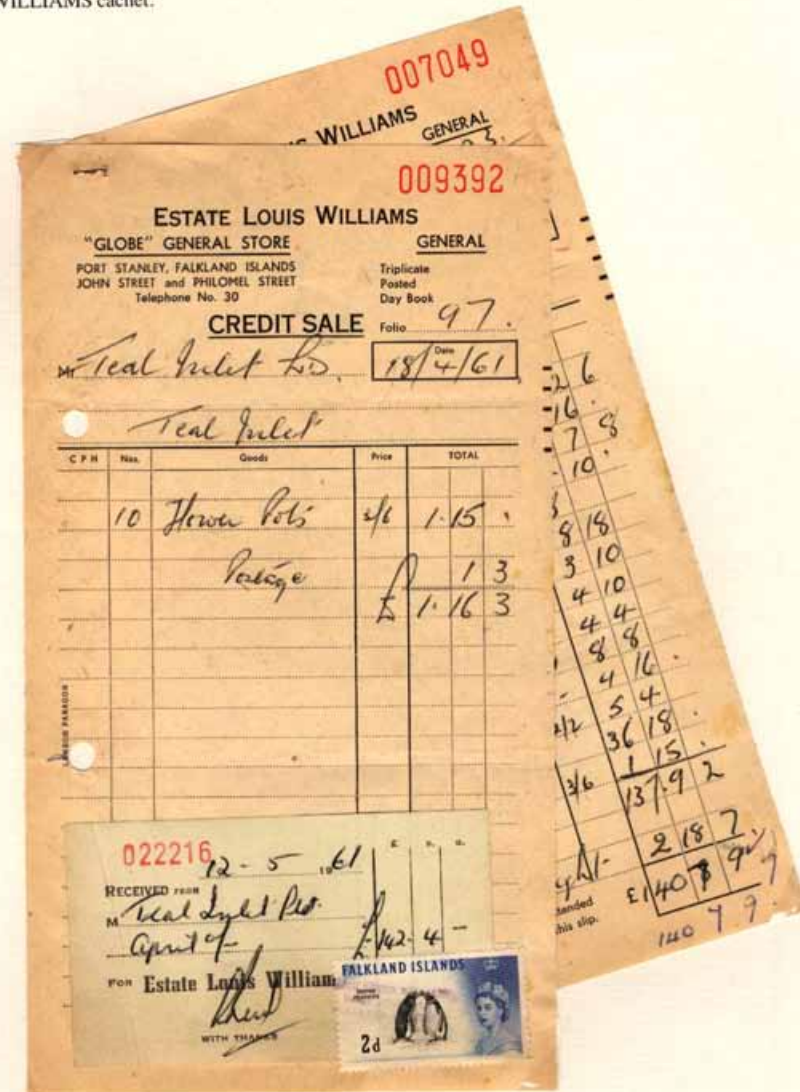 WILLIAMS cachet.
007049
WILLIAMS
GENERAL
009392
ESTATE LOUIS WILLIAMS
"GLOBE" GENERAL STORE
GENERAL
PORT STANLEY, FALKLAND ISLANDS
JOHN STREET and PHILOMEL STREET
Telephone No. 30
Triplicate
Posted
Day Book
Folio 97.
CREDIT SALE
Date
Mr Teal Inlet
18/4/61
Teal Inlet
C P H Nos. Goods Price TOTAL
10 Flower Pots 3/6 1.15 .
Postage 1 3
£ 1.16 3
LAMSON PARAGON
2 6
16 .
7 8
10 .
8 18
3 10
4 10
4 4
8 8
4 16 .
2/2 5 4
36 18 .
3/6 1 15 .
137.9 2
2 18 7
£140 7 9
this slip.
140 7 9
022216
12 - 5 1961
£ s. d.
RECEIVED FROM
M Teal Inlet
April £142 - 4 -
FOR Estate Louis William
WITH THANKS
FALKLAND ISLANDS
2d